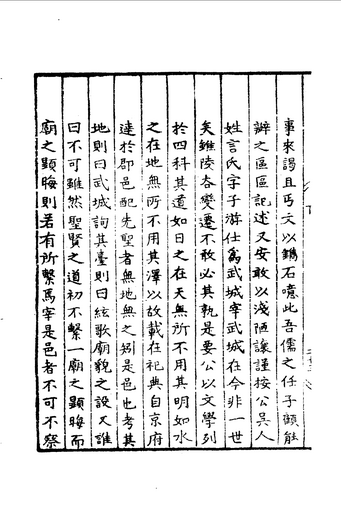 事來謁且丐文以鐫石噫此吾儒之任子顧能
辦之區區記述又安敢以淺陋讓謹按公吳人
姓言氏字子游仕為武城宰武城在今非一世
矣雖陸谷變遷不敢必其孰是要公以文學列
於四科其道如日之在天無所不用其明如水
之在地無所不用其澤以故載在祀典自京府
達於郡邑配先聖者無地無之矧是邑也考其
地則曰武城詢其臺則曰絃歌廟貌之設又誰
曰不可雖然聖賢之道初不繫一廟之顯晦而
廟之顯晦則若有所繫焉宰是邑者不可不察